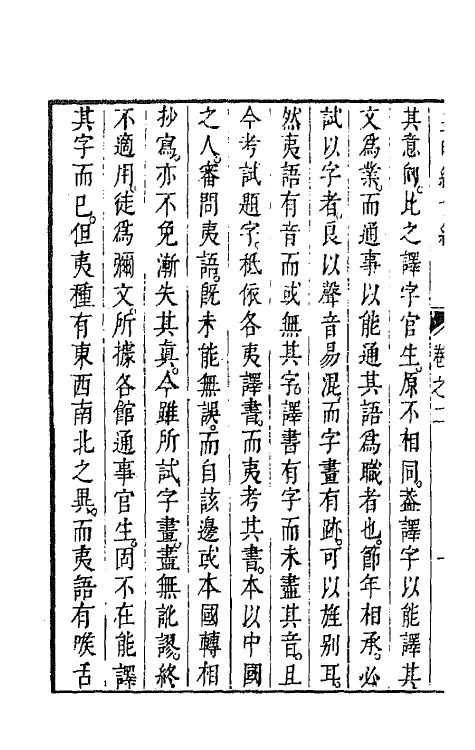 其意向。比之譯字官生。原不相同。葢譯字以能譯其
文爲業。而通事以能通其語爲職者也。節年相承。必
試以字者。良以聲音易混。而字畫有跡。可以旌别耳。
然夷語有音而或無其字。譯書有字而未盡其音。且
今考試題字。秪依各夷譯書。而夷考其書。本以中國
之人。審問夷語。旣未能無誤。而自該邊或本國轉相
抄寫。亦不免漸失其眞。今雖所試字畫。盡無訛謬。終
不適用。徒爲彌文。所據各館通事官生。固不在能譯
其字而已。但夷種有東西南北之異。而夷語有喉舌
卷之二